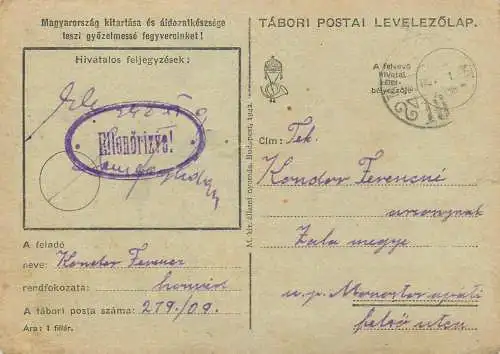 Magyarország kitartása és áldozatkészsége
teszi győzelmessé fegyvereinket!
Hivatalos feljegyzések:
Ellenőrizve!
A feladó
neve: Kondor Ferenc
rendfokozata: honvéd
A tábori posta száma: 219/09.
Ára: 1 fillér.
M. kir. állami nyomda, Budapest, 1942.
TÁBORI POSTAI LEVELEZŐLAP.
A felvevő
hivatal
kelet-
bélyegzője
219
Cím: Tek.
Kondor Ferencné
urasszonynak
Zala megye
u. p. Monostorapáti
felső utca